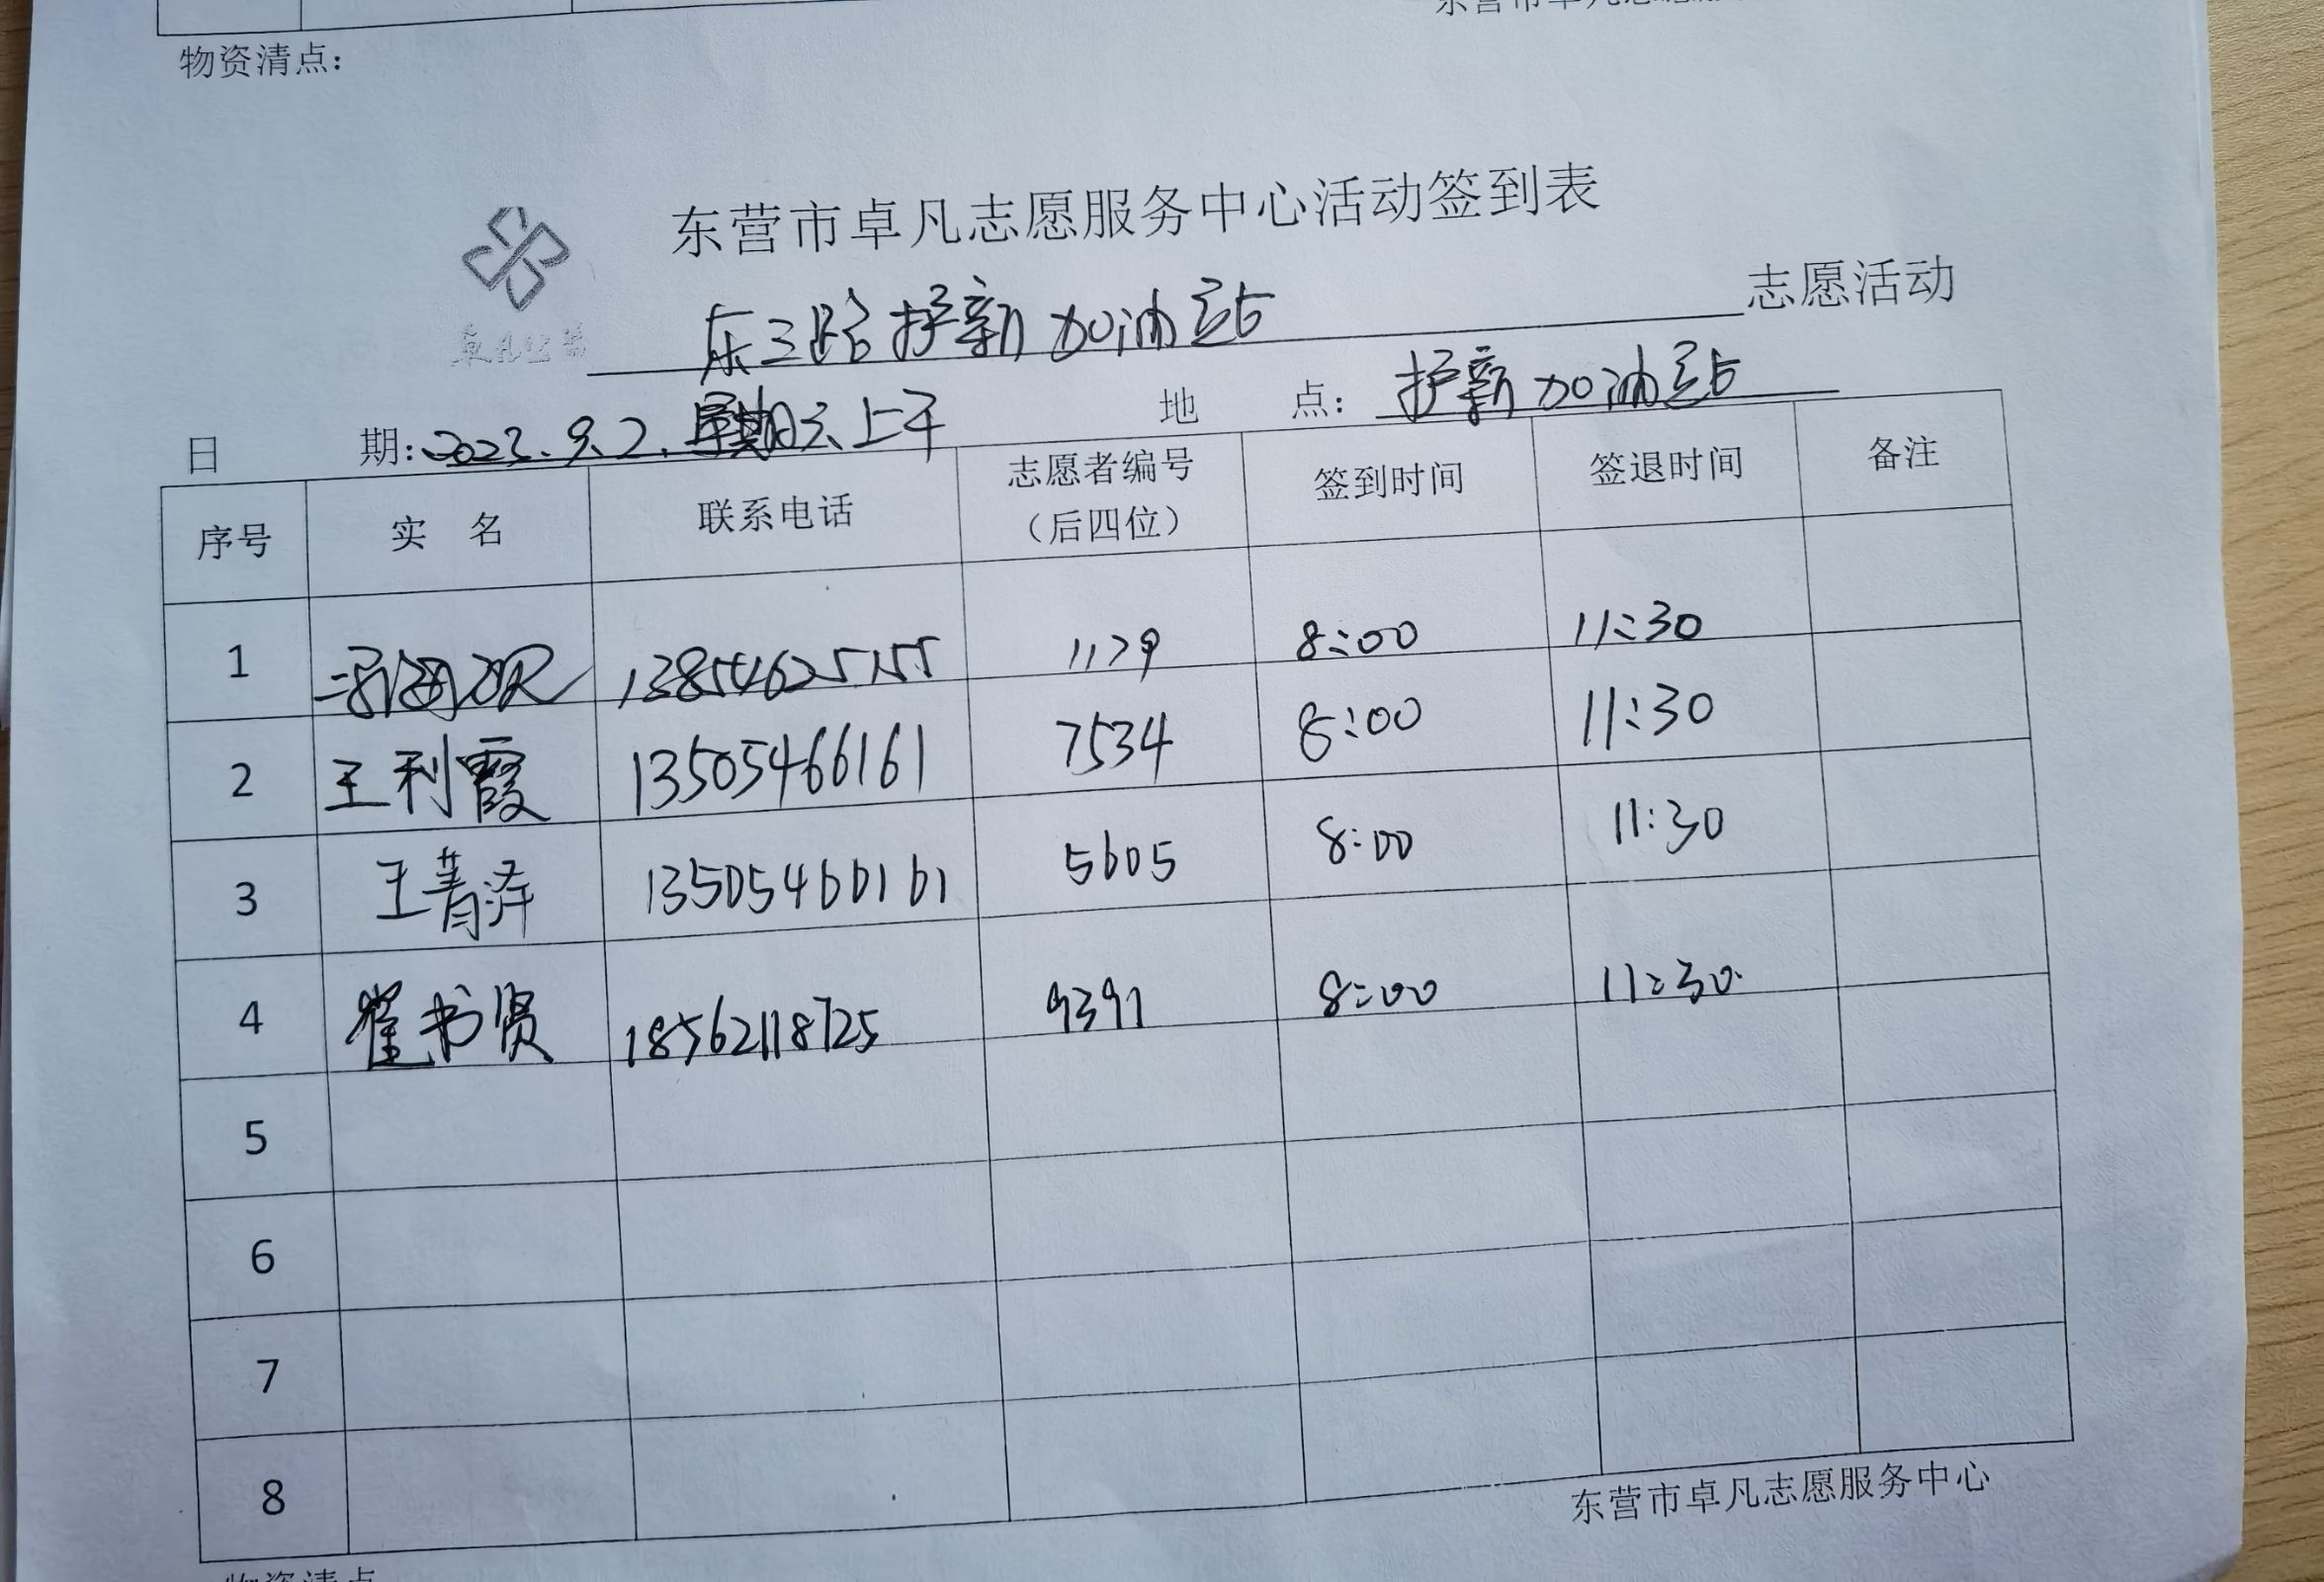 物资清点：
东营市卓凡志愿服务中心活动签到表
东三路护新加油站 志愿活动
日 期：2023.9.2.星期六上午 地 点：护新加油站
序号 实 名 联系电话 志愿者编号（后四位） 签到时间 签退时间 备注
1 13854625155 1129 8:00 11:30
2 王利霞 13505466161 7534 8:00 11:30
3 王菁泽 13505466161 5605 8:00 11:30
4 崔书贤 18562118725 9391 8:00 11:30
5
6
7
8
东营市卓凡志愿服务中心
物资清点